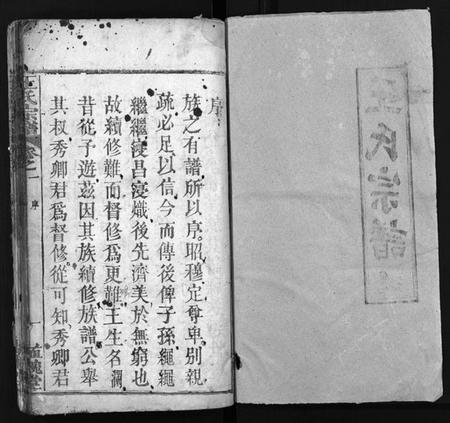 王氏宗譜
序
族之有譜所以序昭穆定尊卑別親
疏必足以信今而傳後俾子孫繩繩
繼繼寖昌寖熾後先濟美於無窮也
故續修難而督修爲更難王生名瀾
昔從予遊茲因其族續修族譜公舉
其叔秀卿君爲督修從可知秀卿君
氏宗譜 卷之一 序 一 堂